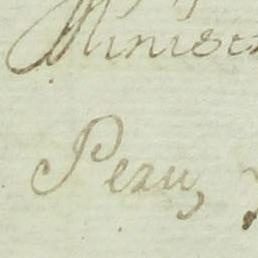 Minist
Peru,